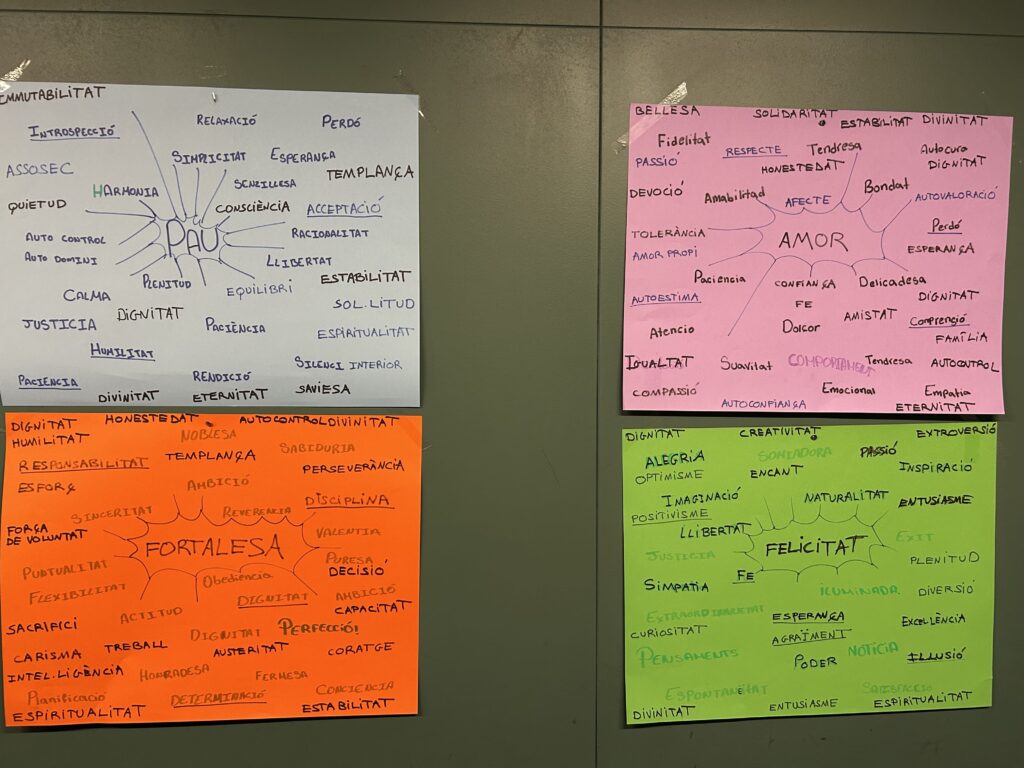 IMMUTABILITAT
INTROSPECCIÓ
RELAXACIÓ
PERDÓ
ASSOSEC
SIMPLICITAT
ESPERANÇA
TEMPLANÇA
HARMONIA
SENZILLESA
QUIETUD
CONSCIÈNCIA
ACCEPTACIÓ
PAU
RACIONALITAT
AUTO CONTROL
AUTO DOMINI
LLIBERTAT
PLENITUD
EQUILIBRI
ESTABILITAT
CALMA
DIGNITAT
SOL.LITUD
JUSTICIA
PACIÈNCIA
ESPIRITUALITAT
HUMILITAT
SILENCI INTERIOR
PACIENCIA
RENDICIÓ
DIVINITAT
ETERNITAT
SAVIESA
BELLESA
SOLIDARITAT
ESTABILITAT
DIVINITAT
Fidelitat
RESPECTE
Tendresa
Autocura
PASSIÓ
HONESTEDAT
DIGNITAT
DEVOCIÓ
Amabilitad
AFECTE
Bondat
AUTOVALORACIÓ
TOLERÀNCIA
AMOR
Perdó
AMOR PROPI
ESPERANÇA
Paciencia
CONFIANÇA
Delicadesa
AUTOESTIMA
FE
DIGNITAT
Atencio
Dolcor
AMISTAT
Comprenció
FAMÍLIA
IGUALTAT
Suavitat
COMPORTAMENT
Tendresa
AUTOCONTROL
COMPASSIÓ
Emocional
Empatia
AUTOCONFIANÇA
ETERNITAT
DIGNITAT
HONESTEDAT
AUTOCONTROL
DIVINITAT
HUMILITAT
NOBLESA
SABIDURIA
RESPONSABILITAT
TEMPLANÇA
PERSEVERÀNCIA
ESFORÇ
AMBICIÓ
DISCIPLINA
SINCERITAT
REVERENCIA
FORÇA
DE VOLUNTAT
VALENTIA
FORTALESA
PUNTUALITAT
PURESA
DECISIÓ
FLEXIBILITAT
Obediencia
AMBICIÓ
ACTITUD
DIGNITAT
CAPACITAT
SACRIFICI
DIGNITAT
PERFECCIÓ!
CARISMA
TREBALL
AUSTERITAT
CORATGE
INTEL.LIGÈNCIA
HONRADESA
FERMESA
Planificació
DETERMINACIÓ
CONCIENCIA
ESPIRITUALITAT
ESTABILITAT
DIGNITAT
CREATIVITAT
EXTROVERSIÓ
ALEGRIA
SOMIADORA
PASSIÓ
OPTIMISME
ENCANT
INSPIRACIÓ
IMAGINACIÓ
NATURALITAT
ENTUSIASME
POSITIVISME
LLIBERTAT
FELICITAT
EXIT
JUSTICIA
PLENITUD
FE
SIMPATIA
ILUMINADA
DIVERSIÓ
EXTRAORDINARIETAT
ESPERANÇA
EXCEL·LÈNCIA
CURIOSITAT
AGRAÏMENT
PENSAMENTS
PODER
NOTICIA
IL·LUSIÓ
ESPONTANEITAT
SATISFACCIÓ
DIVINITAT
ENTUSIASME
ESPIRITUALITAT